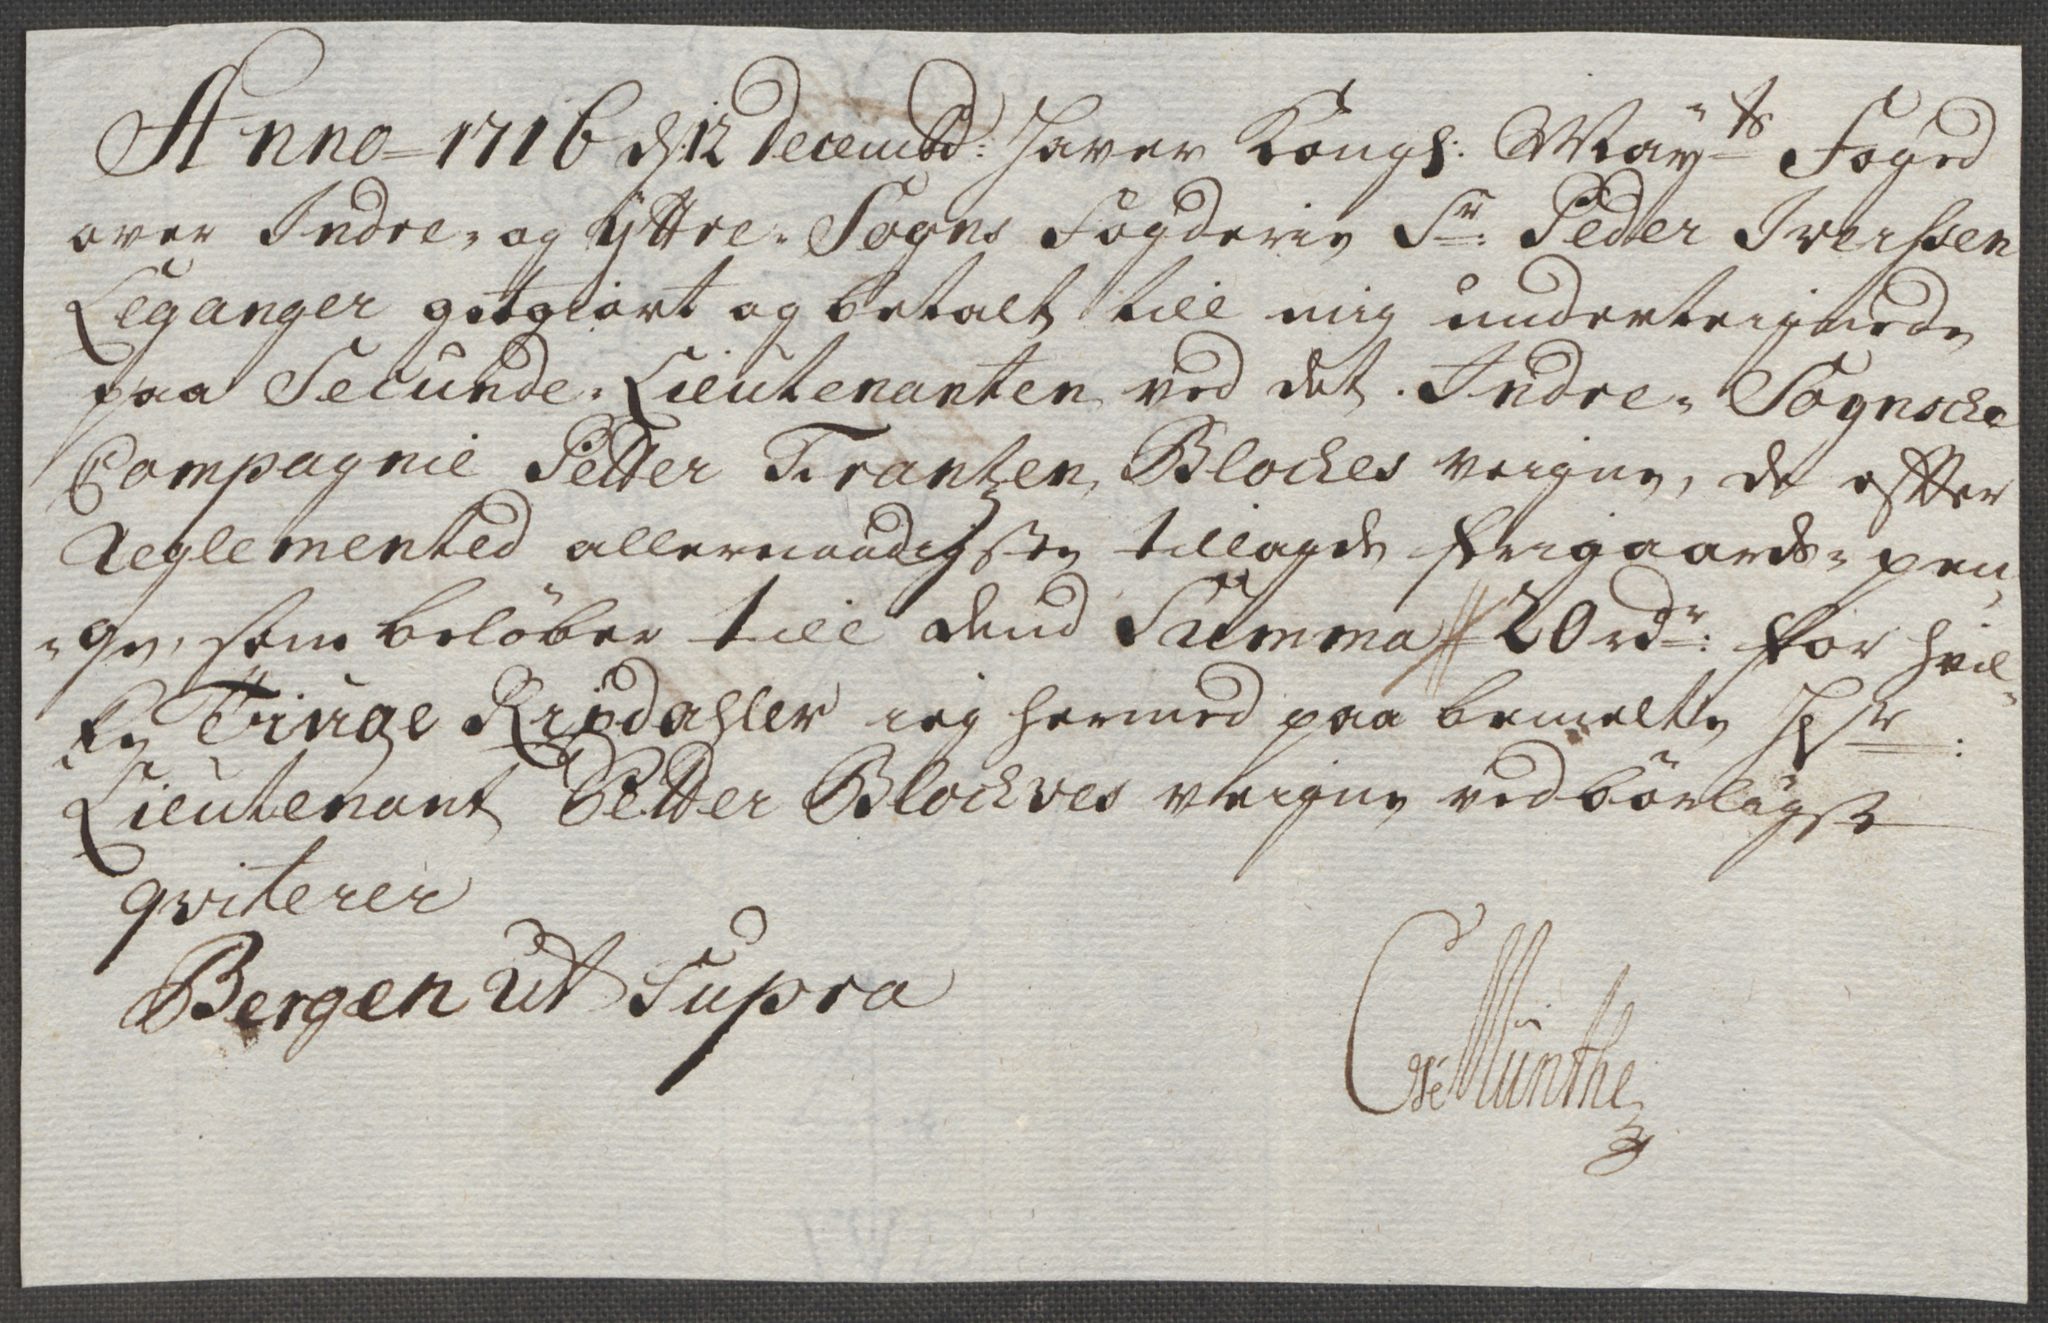 Anno 1716 d: 12 Decembd: Haver Kongl: Maÿts Foged
over Indre- og Ÿttre- Sogns Fogderie Sr: Peder Iverssen
Leganger gotgiort og betalt till mig underteignede
paa Secunde- Lieutenanten ved det Indre- Sognsche
Compagnie Petter Frantzen Bloches veigne, de effter
Reglemented allernaadigste tillagde frigaards- pen-
-ge, som beløber till dend Summa 20 rdr: for hvil-
ke Tiuge Rixdahler ieg hermed paa bemelte Hr:
Lieutenant Petter Blochves veigne vedbørligst
qviterer
Bergen ut Supra
C de Munthe